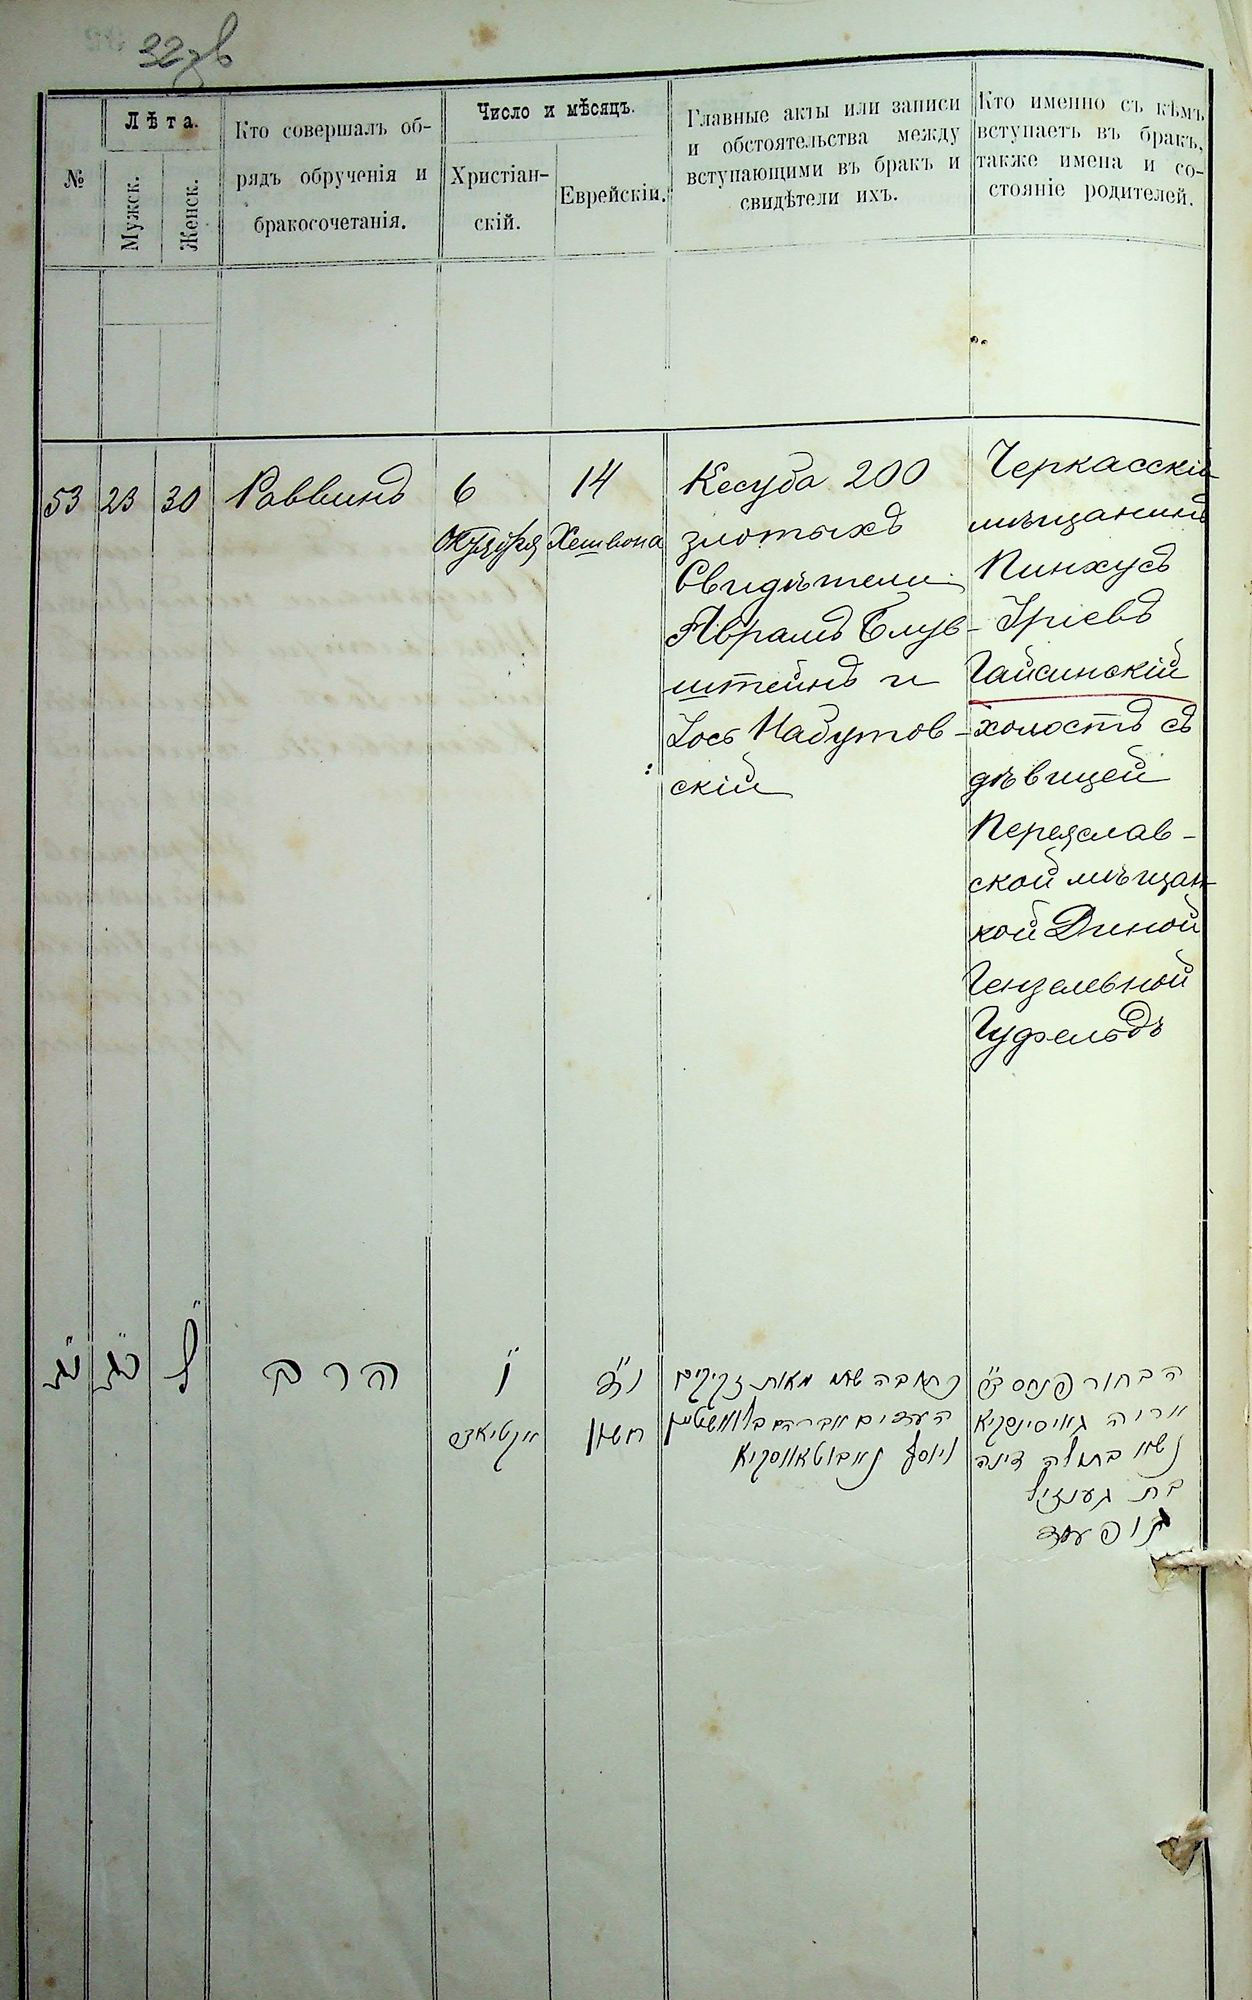 32 зв
№
Лѣта.
Мужск.
Женск.
Кто совершалъ об-
рядъ обрученія и
бракосочетанія.
Число и мѣсяцъ.
Христіан-
скій.
Еврейскій.
Главные акты или записи
и обстоятельства между
вступающими въ бракъ и
свидѣтели ихъ.
Кто именно съ кѣмъ
вступаетъ въ бракъ,
также имена и со-
стояніе родителей.
53
23
30
Раввинъ
6
Октября
14
Хешвона
Кесуба 200
злотыхъ
Свидѣтели
Аврамъ Блув-
штейнъ и
Іось Набутов-
скій
Черкасскій
мѣщанинъ
Пинхусъ
Уріевъ
Гайсинскій
холостъ съ
дѣвицей
Переяслав-
ской мѣщан-
кой Диной
Гензелевной
Гуфельдъ
נ"ג
כ"ג
ל"
הרב
ו"
אקטיאבר
י"ד
חשון
כתובה שתי מאות זקוקים
העדים אברהם בלואושטיין
ויוסף נאבוטאווסקיא
הבחור פנחס ב"ר
אוריה גאיסינסקיא
נשא בתולה דינה
בת גענזיל
גופעלד